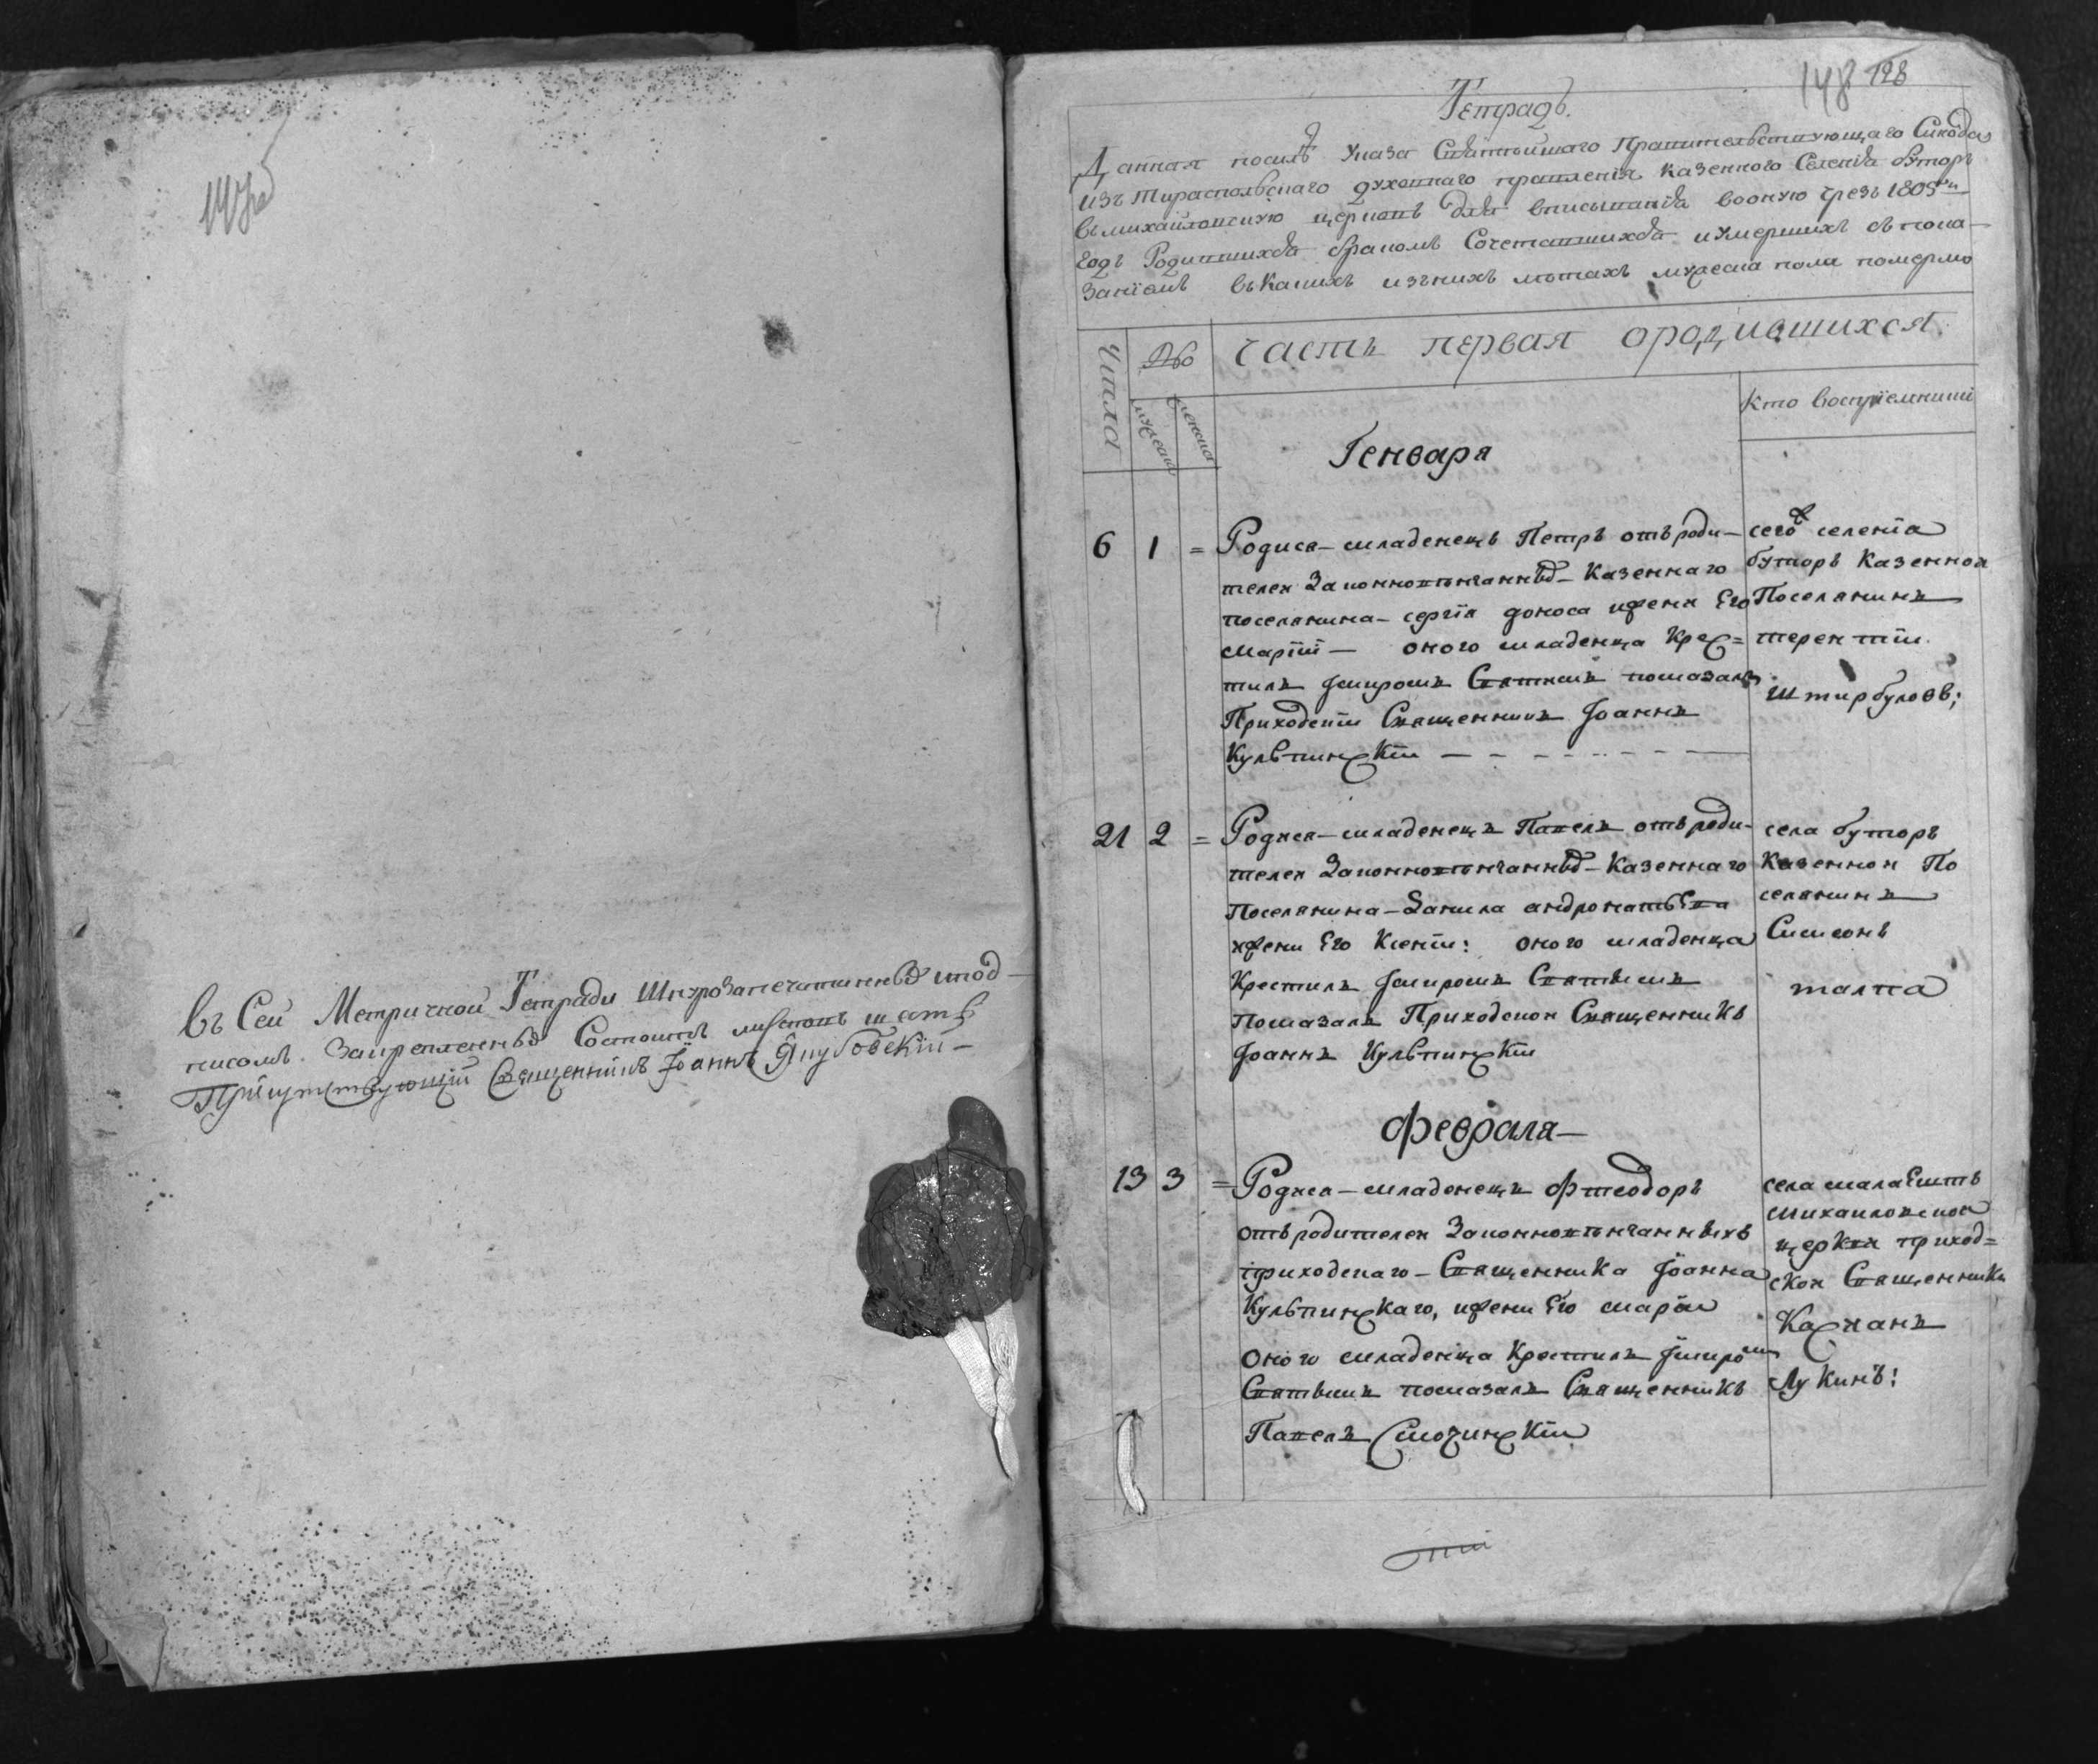 Въ Сей Метричной Тетради Шнурозапечатанныхъ ипод-
писомъ Закрепленныхъ Состоитъ листовъ шесть
Присутствующiй Священникъ Iоаннъ Якубовскiй
148 128
Тетрадь.
Данная посилѣ Указа Святѣйшаго Правительствующаго Синода
изъ Тираспольскаго духовнаго правленія казенного Селенія буторъ
въмихайловскую церковь для вписыванія вооную чрезъ 1805и
годъ Родившихся бракомъ Сочетавшихся иумершихъ съпока-
заніемъ въкакихъ изънихъ лѣтахъ мужеска пола померло
Числа
№
часть первая ородившихся.
мужеска
женска
Кто воспріемники
Генваря
6 1 = Родися младенецъ Петръ отъ роди-
телей Законновѣнчанныхъ Казеннаго
поселянина сергія доноса ижени Его
маріи оного младенца Крес=
тилъ ѵмиромъ Святимъ помазалъ
Приходскій Священникъ Іоаннъ
Кульчинскій
сего селенія
буторъ Казенной
Поселянинъ
терентій
штирбуловъ;
21 2 = Родися младенецъ Павелъ отъ роди-
телей Законновѣнчанныхъ Казеннаго
Поселянина Данила андронатьева
ижени Его Ксеніи: оного младенца
Крестилъ ѵмиромъ Святымъ
Помазалъ Приходской Священникъ
Іоаннъ Кульчинскій
села буторъ
Казенной По
селянинъ
Симеонъ
талпа
февраля
13 3 = Родися младенецъ фтеодоръ
отъ родителей Законновѣнчанныхъ
приходскаго Священника Іоанна
Кульчинскаго, ижени Его маріи
Оного младенца Крестилъ ѵмиромъ
Святымъ помазалъ Священникъ
Павелъ Смочинскій
села малаештъ
михайловской
церкви приход=
ской Священникъ
Касиянъ
Лукинъ: